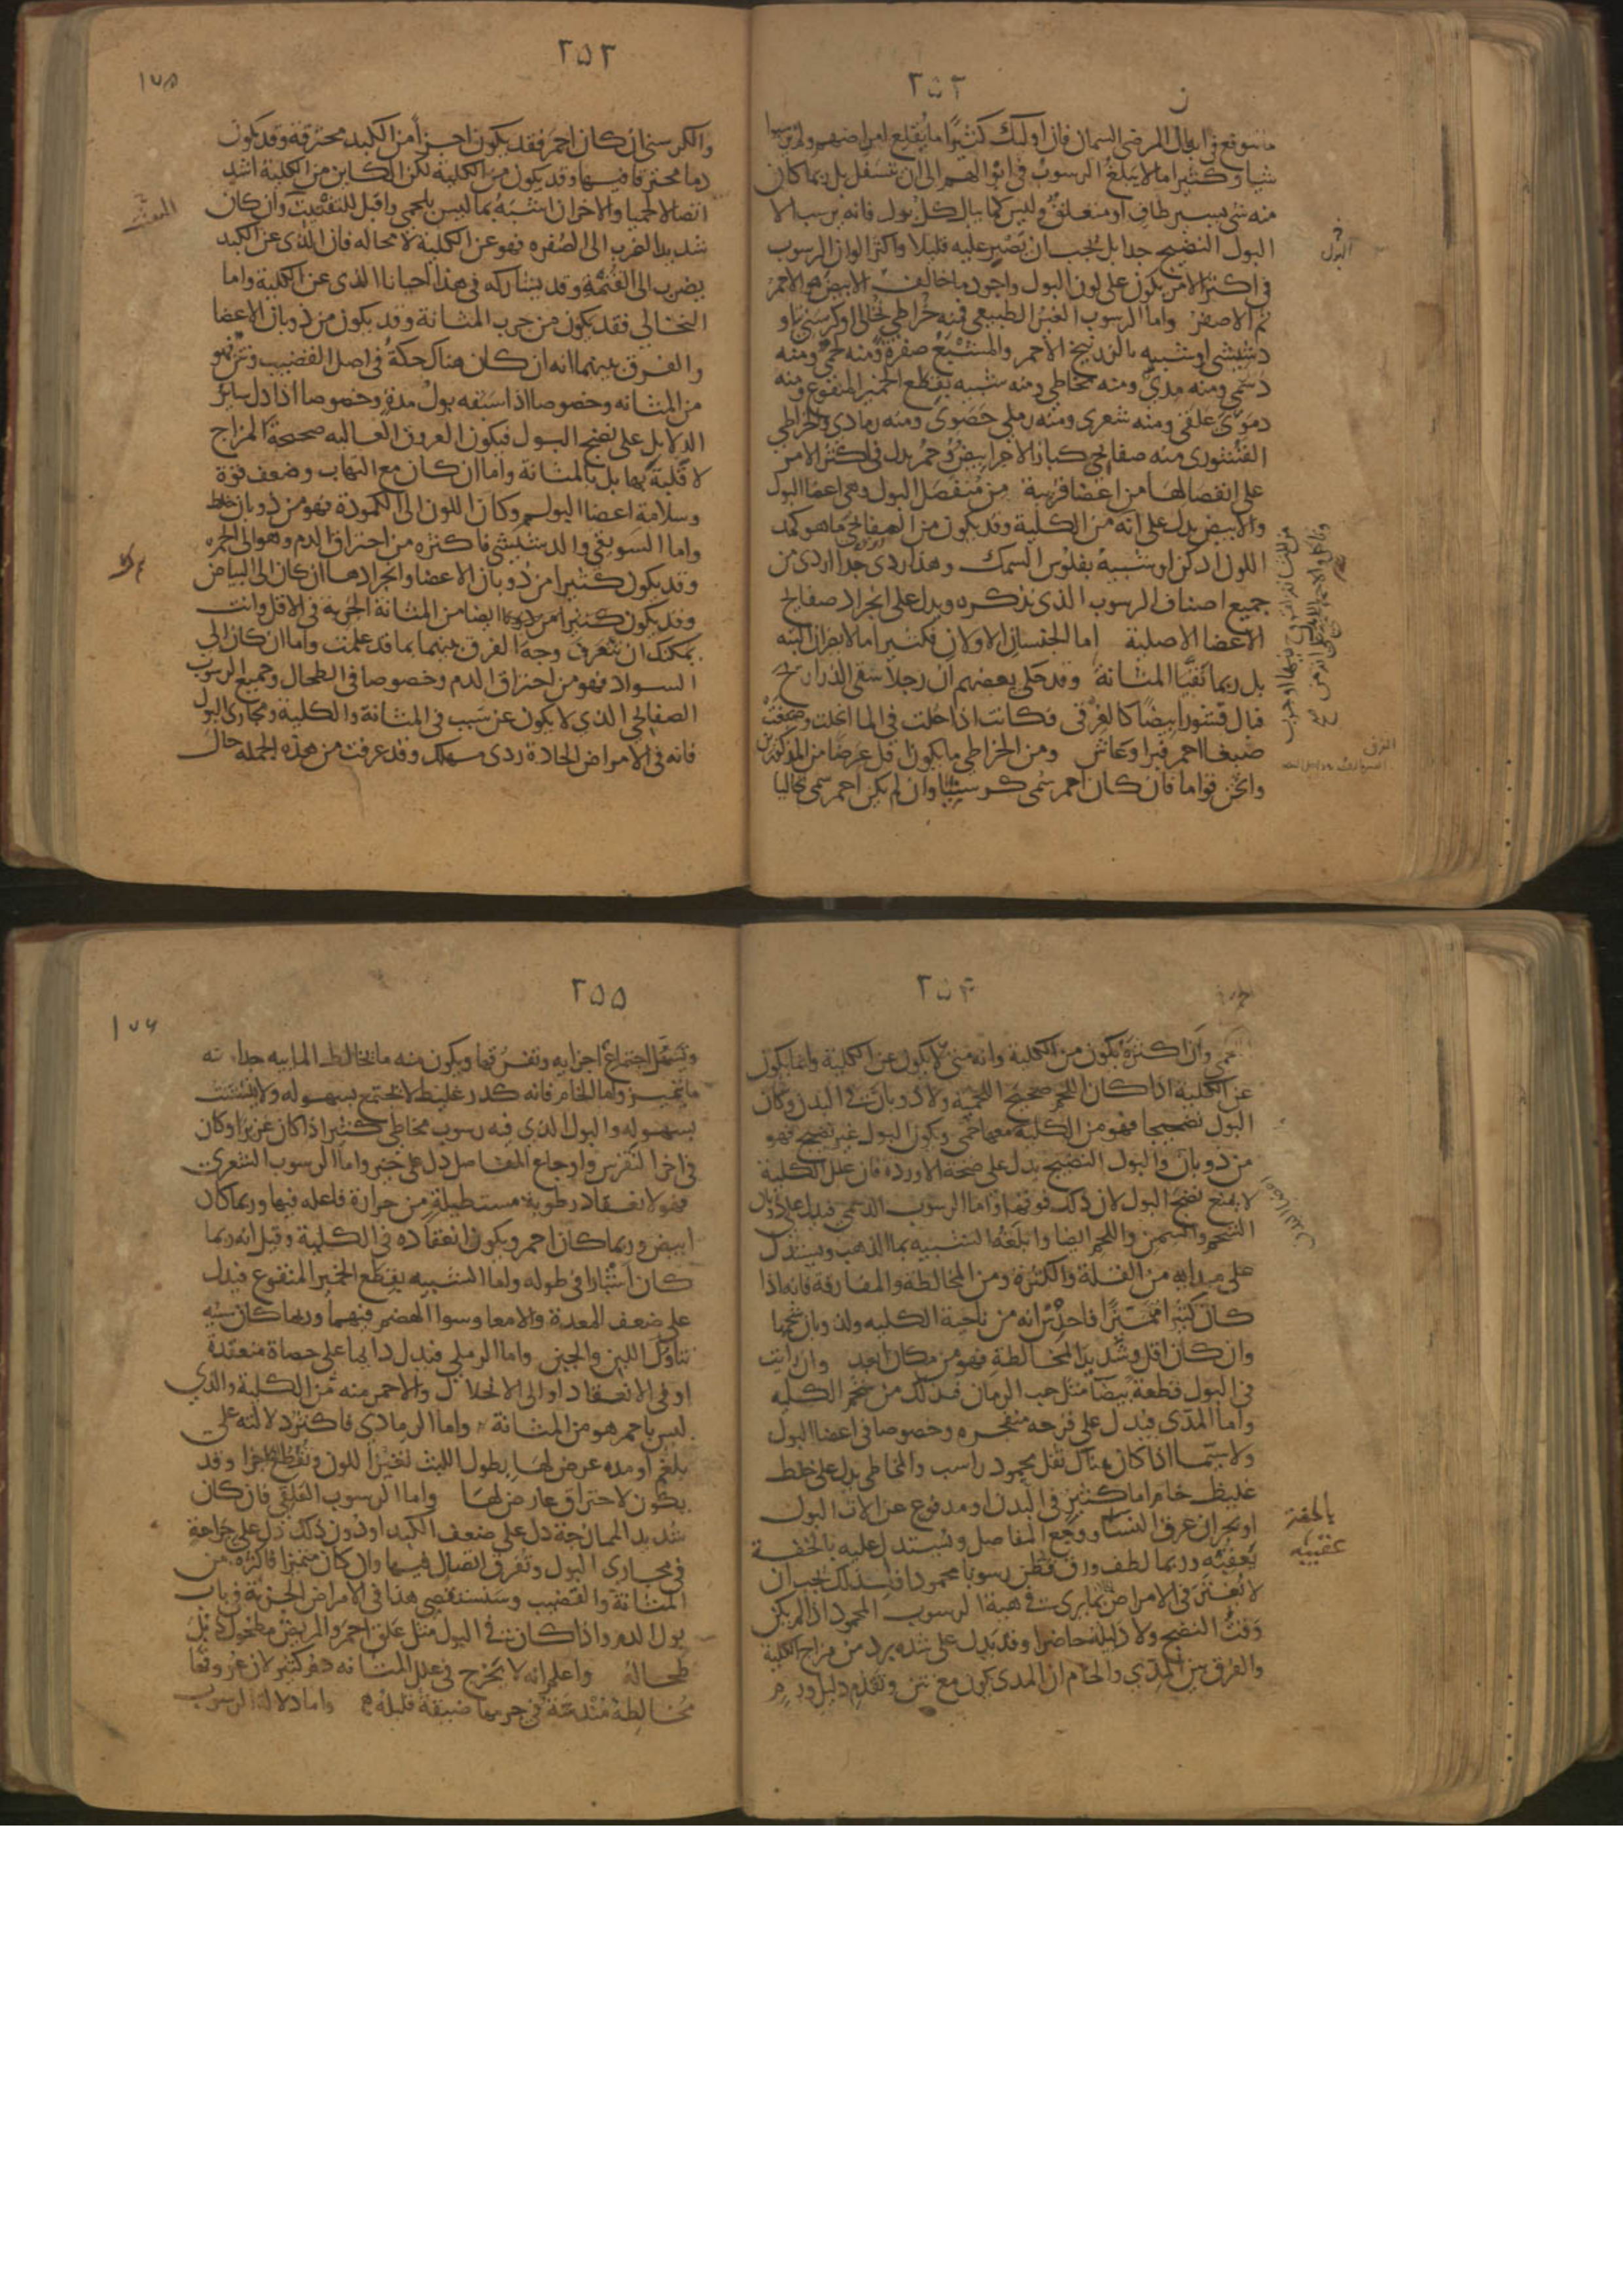 ٢٥٢
ما يتوقع في ابوال المرضى السمان فان اوليك كثيرا ما يقلع امراضهم ولم يرسبوا
شيا وكثيرا ما لا يبلغ الرسوب في ابوالهم الى ان تتسفل بل ربما كان
منه شى يسير طاف او متعلق وليس كما يبال كل بول فانه يرسب الا
البول النضيج جدا بل يجب ان يصبر عليه قليلا واكثر الوان الرسوب
في اكثر الامر يكون على لون البول واجود ما خالف الابيض هو الاحمر
ثم الاصفر واما الرسوب الغير الطبيعي فمنه خراطي نخالى او كرسني او
دشيشى او شبيه بالزرنيخ الاحمر والمشبع صفرة ومنه لحمى ومنه
دسمى ومنه مدى ومنه مخاطي ومنه شبيه بقطع الخمير المنقوع ومنه
دموى علقى ومنه شعرى ومنه رملى حصوى ومنه رمادى والخراطي
القشورى منه صفايحي كبار الاجزا بيض وحمر يدل في اكثر الامر
على انفصالها من اعضا قريبة من منفصل البول وهى اعضا البول
والابيض يدل على انه من المثانة
اللون ادكن او شبيه بفلوس السمك وهذا ردى جدا اردى من
جميع اصناف الرسوب الذى نذكره ويدل على انجراد صفايح
الاعضا الاصلية اما الجنسان الاولان فكثيرا ما لا يضران البته
بل ربما نقيا المثانة وقد حكى بعضهم ان رجلا سقى الذراريح
فبال قشورا بيضا كالغرقى فكانت اذا حلت في الما انحلت وصبغت
صبغا احمر فبرا وعاش ومن الخراطي ما يكون اقل عرضا من المذكورين
واثخن قواما فان كان احمر سمى كرسنيا وان لم يكن احمر سمى نخاليا
البول
٢٥٣
١٧٥
والكرسنى ان كان احمر فقد يكون اجزا من الكبد محترقة وقد يكون
دما محترقا فيها وقد يكون من الكلية لكن الكاين من الكلية اشد
اتصالا لحميا والاخران اشبه بما ليس بلحمى واقبل للتفتيت وان كان
شديد الضرب الى الصفره فهو عن الكلية لا محاله فان الذى عن الكبد
يضرب الى القتمة وقد يشاركه في هذا احيانا الذى عن الكلية واما
النخالى فقد يكون من جرب المثانة وقد يكون من ذوبان الاعضا
والفرق بينهما انه ان كان هناك حكة في اصل القضيب ونتن فهو
من المثانه وخصوصا اذا سبقه بول مدة وخصوصا اذا دل ساير
الدلايل على نضج البول فيكون العروق العاليه صحيحة المزاج
لا قلبة بها بل بالمثانة واما ان كان مع التهاب وضعف قوة
وسلامة اعضا البول وكان اللون الى الكمودة فهو من ذوبان خلط
واما السويقى والدشيشى فاكثره من احتراق الدم وهو الى الحمره
وقد يكون كثيرا من ذوبان الاعضا وانجرادها ان كان الى البياض
وقد يكون كثيرا من ايضا من المثانة الجربة في الاقل وانت
يمكنك ان تتعرف وجه الفرق بينهما بما قد علمت واما ان كان الى
السواد فهو من احتراق الدم وخصوصا في الطحال وجميع الرسوب
الصفايحى الذى لا يكون عن سبب في المثانة والكلية ومجارى البول
فانه في الامراض الحادة ردى مهلك وقد عرفت من هذه الجملة حال
٢٥٤
وان اكثره يكون من الكلية وانه متى لا يكون عن الكلية وانما يكون
عن الكلية اذا كان اللحم صحيح اللحمية ولا ذوبان في البدن وكان
البول نضيجا فهو من الكلية معها حمى ويكون البول غير نضيج فهو
من ذوبان والبول النضيج يدل على صحة الاورده فان علل الكلية
لا يمنع نضج البول لان ذلك فوقها واما الرسوب الدسمى فيدل على ذوبان
الشحم والسمين واللحم ايضا وابلغه الشبيه بما الذهب ويستدل
على مبدايه من القلة والكثرة ومن المخالطة والمفارقة فانه اذا
كان كثيرا متميزا فاحدس انه من ناحية الكليه ولذوبان شحمها
وان كان اقل وشديد المخالطة فهو من مكان ابعد وان رايت
في البول قطعة بيضا مثل حب الرمان فذلك من شحم الكليه
واما المدى فيدل على قرحه منفجره وخصوصا في اعضا البول
ولا سيما اذا كان هناك ثفل محمود راسب والمخاطى يدل على خلط
غليظ خام اما كثير في البدن او مدفوع عن الات البول
او بحران عرق النسا ووجع المفاصل ويستدل عليه بالخفة
تعقبه وربما لطف ورق فظن رسوبا محمودا فلذلك يجب ان
لا يغتر في الامراض بما يرى في هية الرسوب المحمود اذا لم يكن
وقت النضج ولا دليله حاضرا وقد يدل على شده برد من مزاج الكلية
والفرق بين المدى والخام ان المدى يكون مع نتن وتقدم دليل ورم
بالخفة
عقيبه
٢٥٥
١٧٦
ويسهل اجتماع اجزايه وتفرقها ويكون منه ما يخالط المايية جدا ومنه
ما يتميز واما الخام فانه كدر غليظ لا يجتمع بسهوله ولا يتشتت
بسهوله والبول الذى فيه رسوب مخاطى كثير اذا كان غزيرا وكان
في اخر النقرس واوجاع المفاصل دل على خير واما الرسوب الشعرى
فهو لانعقاد رطوبة مستطيلة من حرارة فاعله فيها وربما كان
ابيض وربما كان احمر ويكون انعقاده في الكلية وقيل انه ربما
كان اشبارا في طوله واما الشبيه بقطع الخمير المنقوع فيدل
على ضعف المعدة والامعا وسوا الهضم فيهما وربما كان سببه
تناول اللبن والجبن واما الرملى فيدل دايما على حصاة منعقدة
او في الانعقاد او الى الانحلال والاحمر منه من الكلية والذى
ليس باحمر هو من المثانة واما الرمادى فاكثر دلالته على
بلغم او مده عرض لها بطول اللبث تغير اللون وتقطع اجزا وقد
يكون لاحتراق عارض لها واما الرسوب العلقى فان كان
شديد الممازجة دل على ضعف الكبد او دون ذلك دل على جراحة
في مجارى البول وتفرق اتصال فيها وان كان متميزا فاكثره من
المثانة والقضيب وسنستقصى هذا في الامراض الجزئية في باب
بول الدم واذا كان في البول مثل علق احمر والمريض مطحول ذبل
طحاله واعلم انه لا يخرج في علل المثانه دم كثير لان عروقها
مخالطة مندسة في جرمها ضيقة قليلة واما دلالة الرسوب